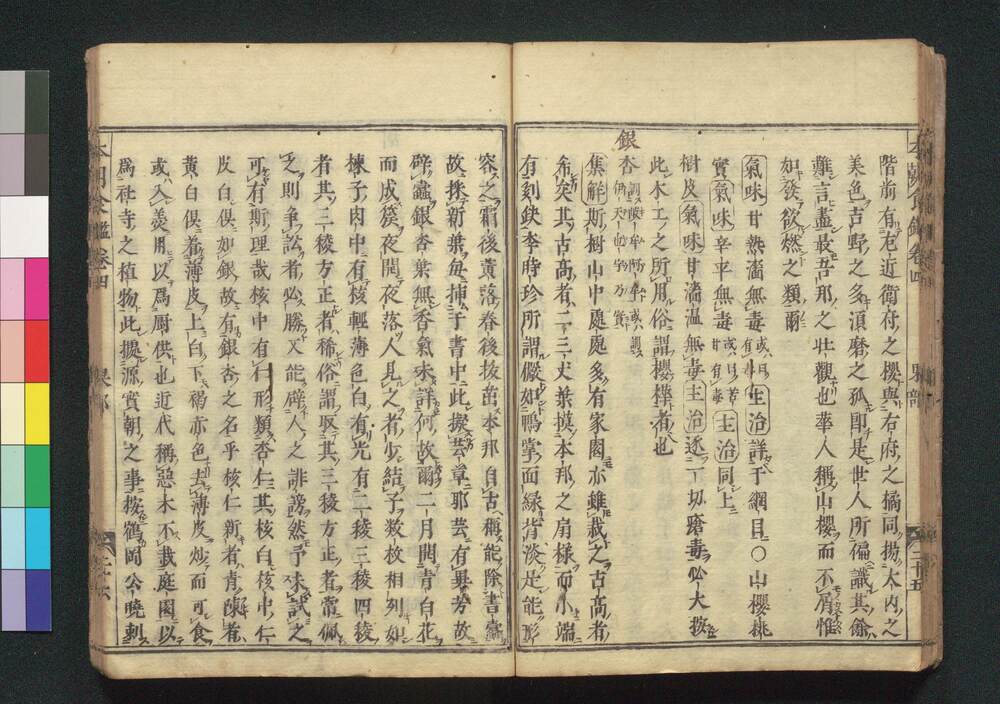 本朝食鑑卷四 果部 二十五
階前有左近衛府之櫻與右府之橘同揚大内之
美色吉野之多須磨之孤即是世人所偏識其餘
難言盡最吾邦之壯觀也華人稱山櫻而不屑惟
如發欲燃之類爾
氣味甘熱濇無毒或曰有小毒主治詳于綱目〇山櫻桃
實氣味辛平無毒或曰苦甘有毒主治同上
樹皮氣味甘濇温無毒主治逐一切瘡毒必大抜
此木工之所用俗謂櫻樺者也
銀杏
集解斯樹山中處處多有家園亦雖栽之古高者
希矣其古高者二三丈葉摸本邦之扇樣而小端
有刻缺李時珍所謂儼如鴨掌面緑背淡是能形
容之霜後黄落春後抜茁本邦自古稱能除書蠧
故採新葉毎挿于書中此擬芸草耶芸有異芳故
辟蠧銀杏葉無香氣味詳何故爾二月開青白花
而成簇夜開夜落人見之者少結子数枚相列如
楝子肉中有核輕薄色白有光有二稜三稜四稜
者其三稜方正者稀俗謂取其三稜方正者常佩
之則爭訟者必勝又能碎人之誹謗然予未試之
可有斯理哉核中有仁形類杏仁其核白核中仁
皮白倶如銀故有銀杏之名乎核仁新者青陳者
黄白倶着薄皮上白下褐赤色去薄皮炒而可食
或入羹用以爲厨供也近代稱惡木不栽庭園以
爲社寺之植物此據源實朝之事按鶴岡公曉刺
本朝食鑑卷四 果部